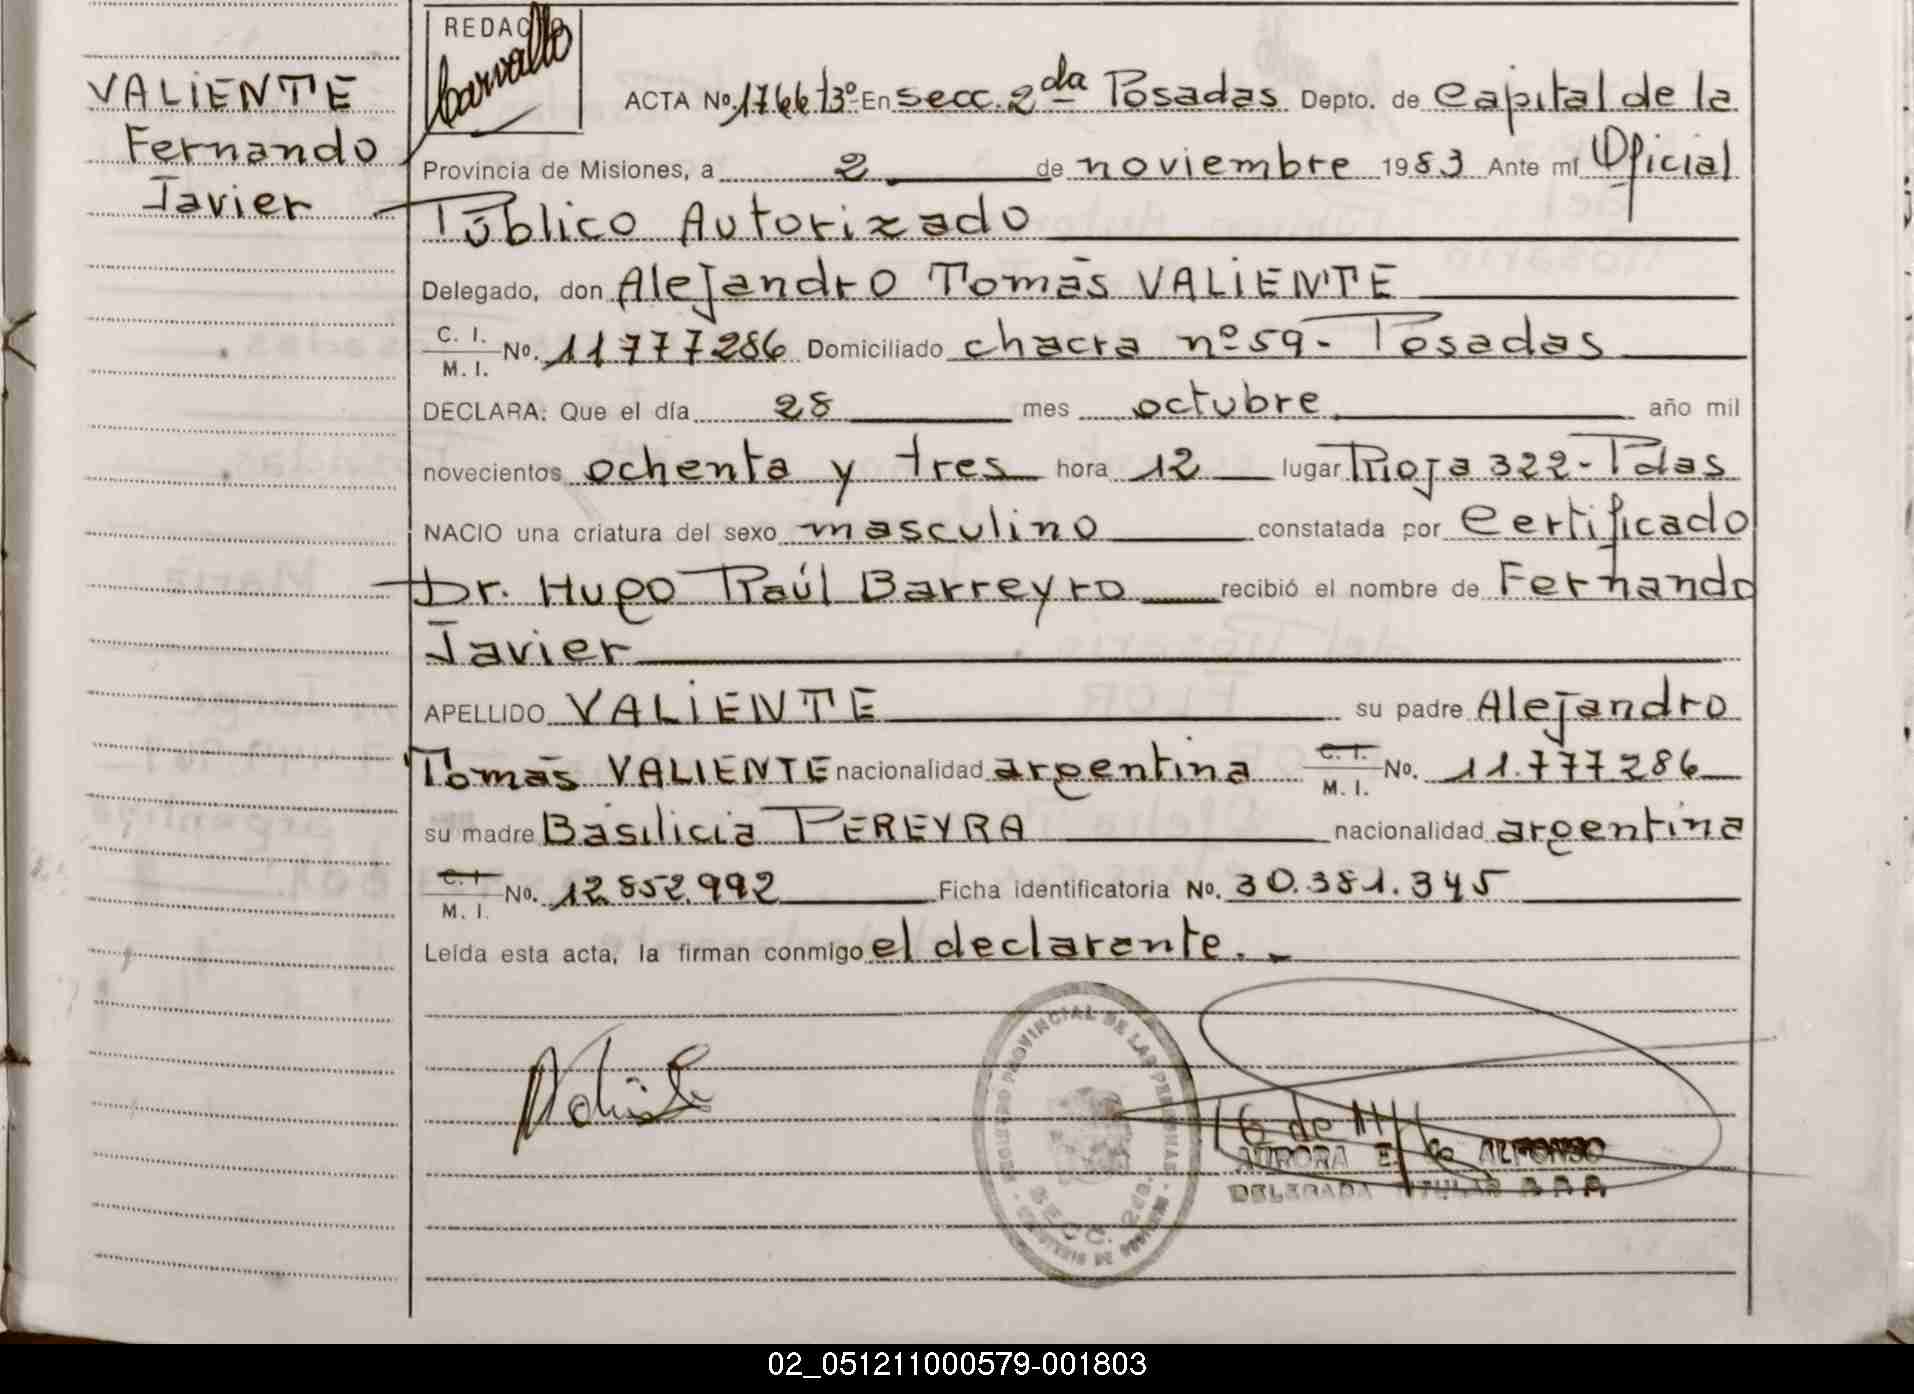 REDAC
Carvallo
VALIENTE
Fernando
Javier
ACTA No. 1766 t3º En secc. 2da Posadas Depto. de Capital de la
Provincia de Misiones, a 2 de noviembre 1983 Ante mí Oficial
Público Autorizado
Delegado, don Alejandro Tomás VALIENTE
C. I.
M. I. No. 11777286 Domiciliado chacra nº 59- Posadas
DECLARA: Que el día 28 mes octubre año mil
novecientos ochenta y tres hora 12 lugar Rioja 322- Pdas
NACIO una criatura del sexo masculino constatada por Certificado
Dr. Hugo Raúl Barreyro recibió el nombre de Fernando
Javier
APELLIDO VALIENTE su padre Alejandro
Tomás VALIENTE nacionalidad argentina C. I. M. I. No. 11.777.286
su madre Basilicia PEREYRA nacionalidad argentina
C. I. M. I. No. 12.852.992 Ficha identificatoria No. 30.381.345
Leída esta acta, la firman conmigo el declarante.
REGISTRO PROVINCIAL DE LAS PERSONAS
SECC. 2da.
AURORA E. de ALFONSO
DELEGADA TITULAR
02_051211000579-001803